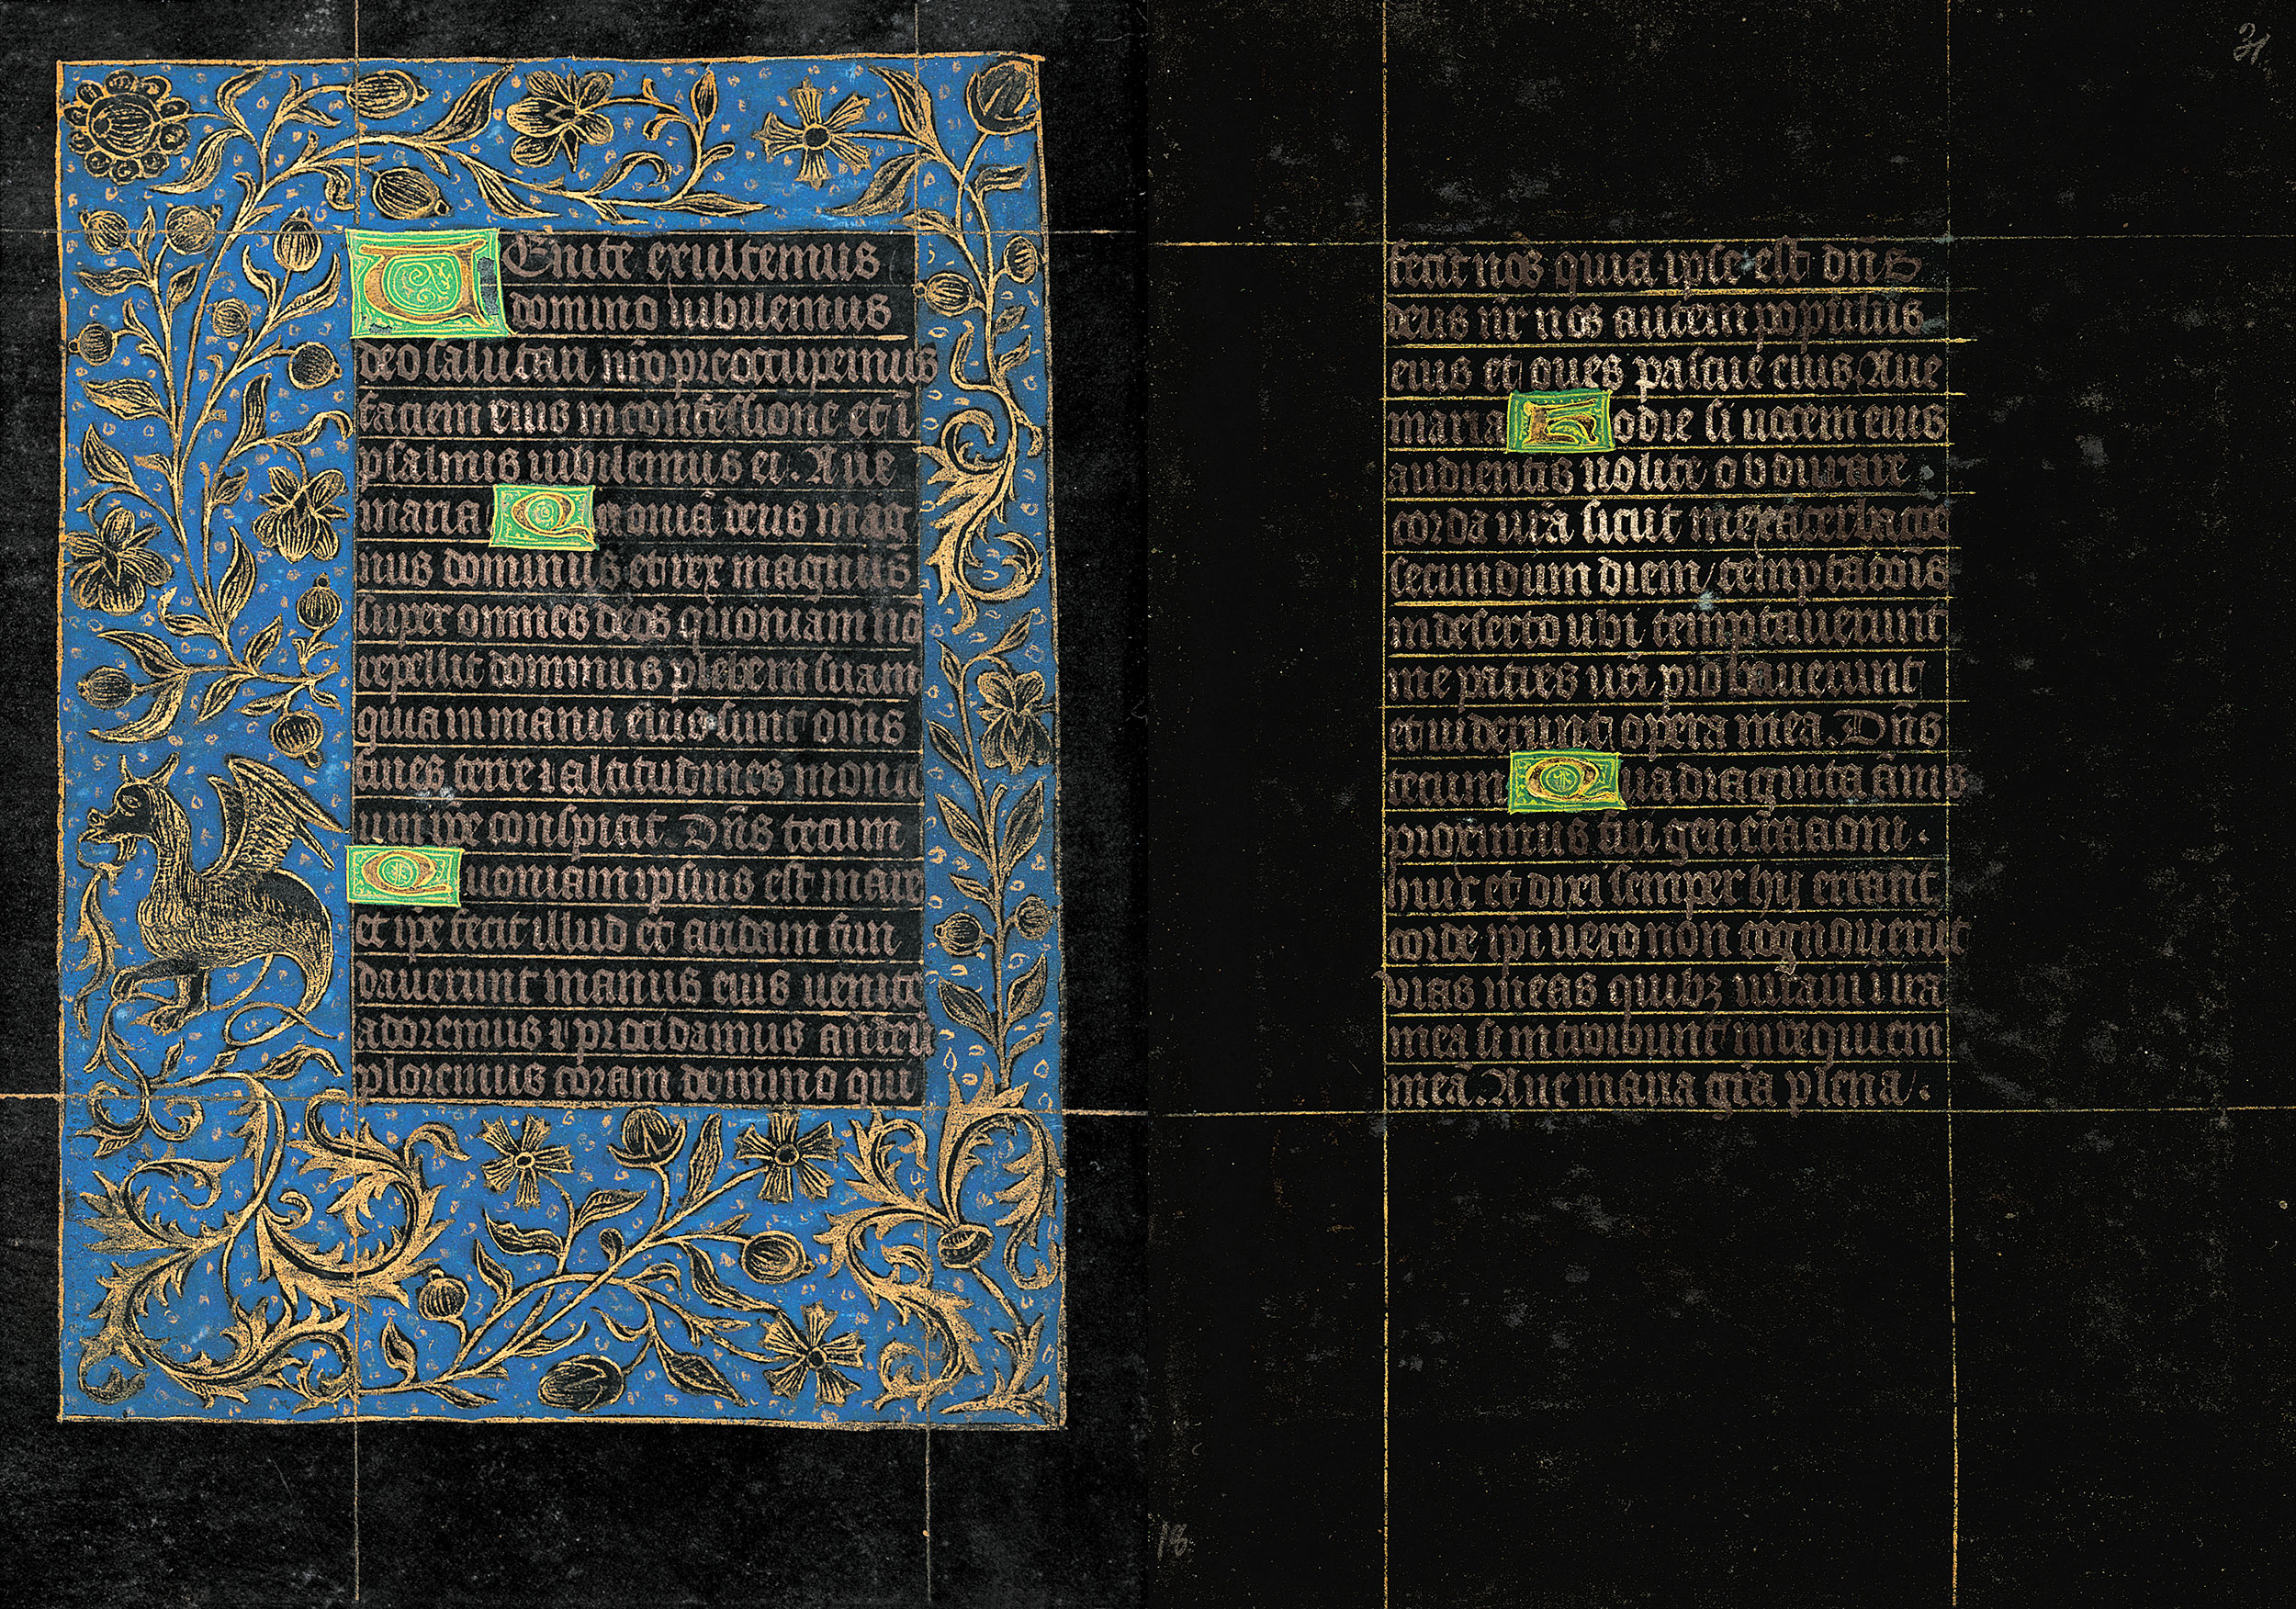 VEnite exultemus
domino iubilemus
deo salutari nr̄o preoccupemus
faciem eius in confessione et ī
psalmis iubilemus ei. Aue
maria Qnoniā deus mag
nus dominus et rex magnus
super omnes deos quoniam nō
repellit dominus plebem suam
quia in manu eius sunt om̄s
fines terre ⁊ altitudines monti
um ip̄e conspicit. Dn̄s tecum
Quoniam ipsius est mare
et ip̄e fecit illud et aridam fun
dauerunt manus eius uenite
adoremus ⁊ procidamus an̄ deū
ploremus coram domino qui
31.
fecit nos quia ipse est dn̄s
deus nr̄ nos autem populus
eius et oues pascue eius. Aue
maria Hodie si uocem eius
audieritis nolite obdurare
corda ur̄a sicut in exacerbacōe
secundum diem temptacōis
in deserto ubi temptauerunt
me patres ur̄i probauerunt
et uiderunt opera mea. Dn̄s
tecum Quadraginta ānis
proximus fui generac̄oni.
huic et dixi semper hij errant
corde ip̄i uero non cognouerūt
vias meas quibꝫ iuraui ī ira
mea si introibunt in requiem
meā. Aue maria gr̄a plena.
18